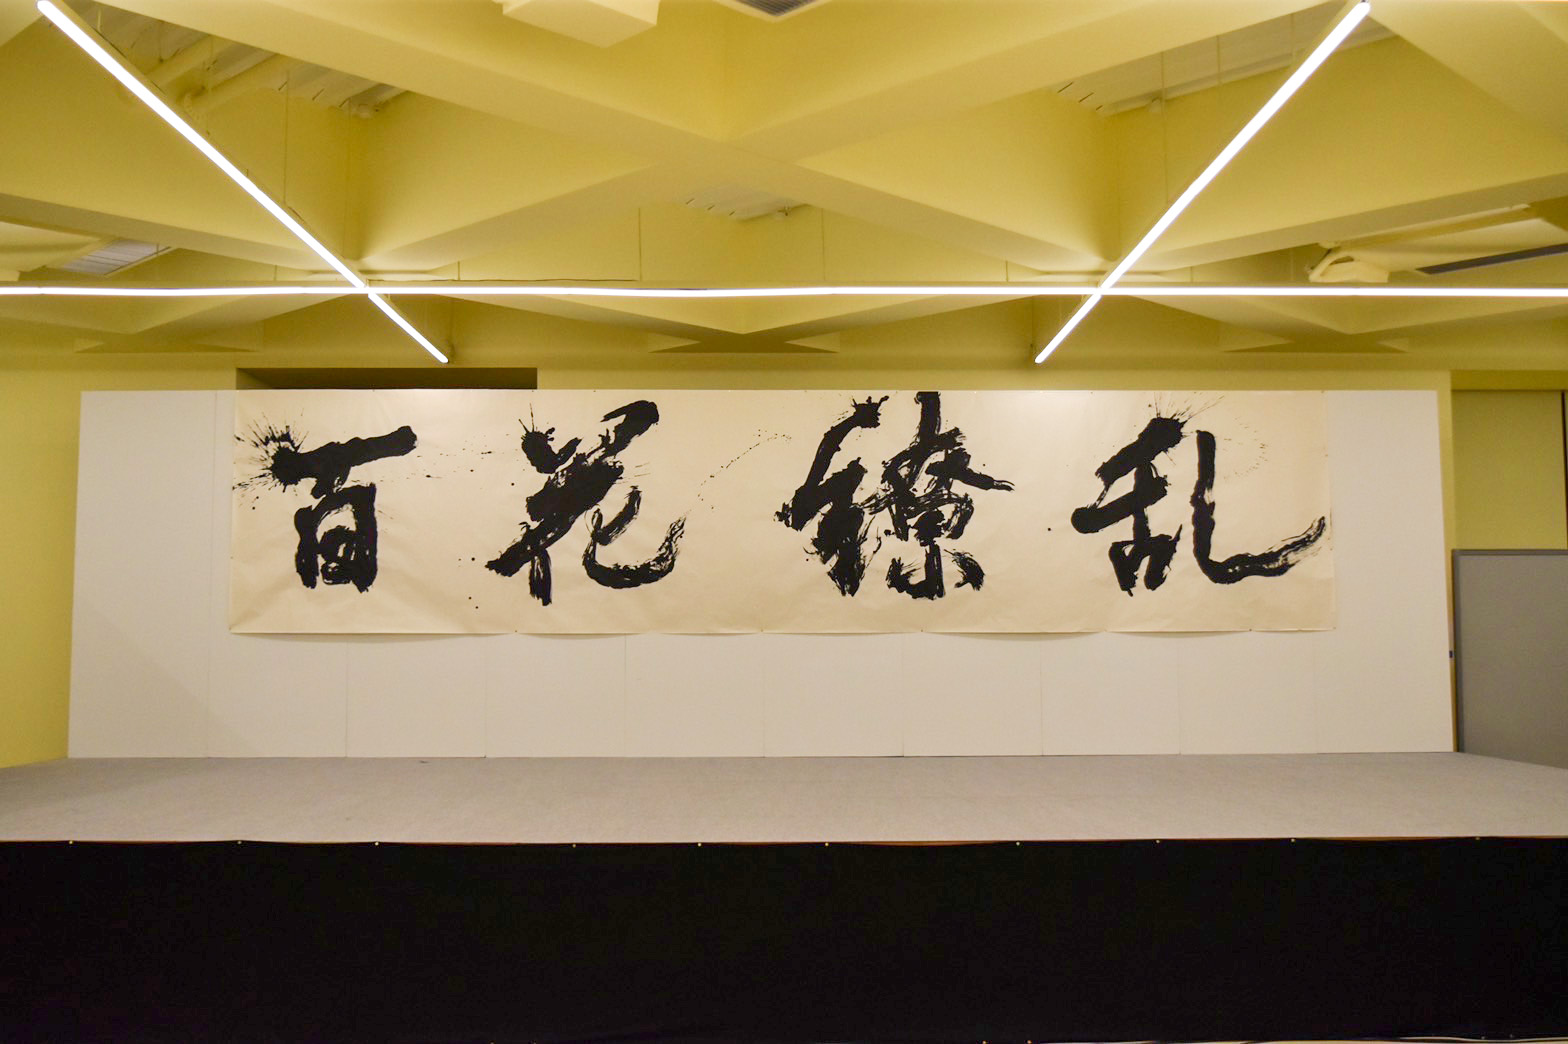 百花繚乱